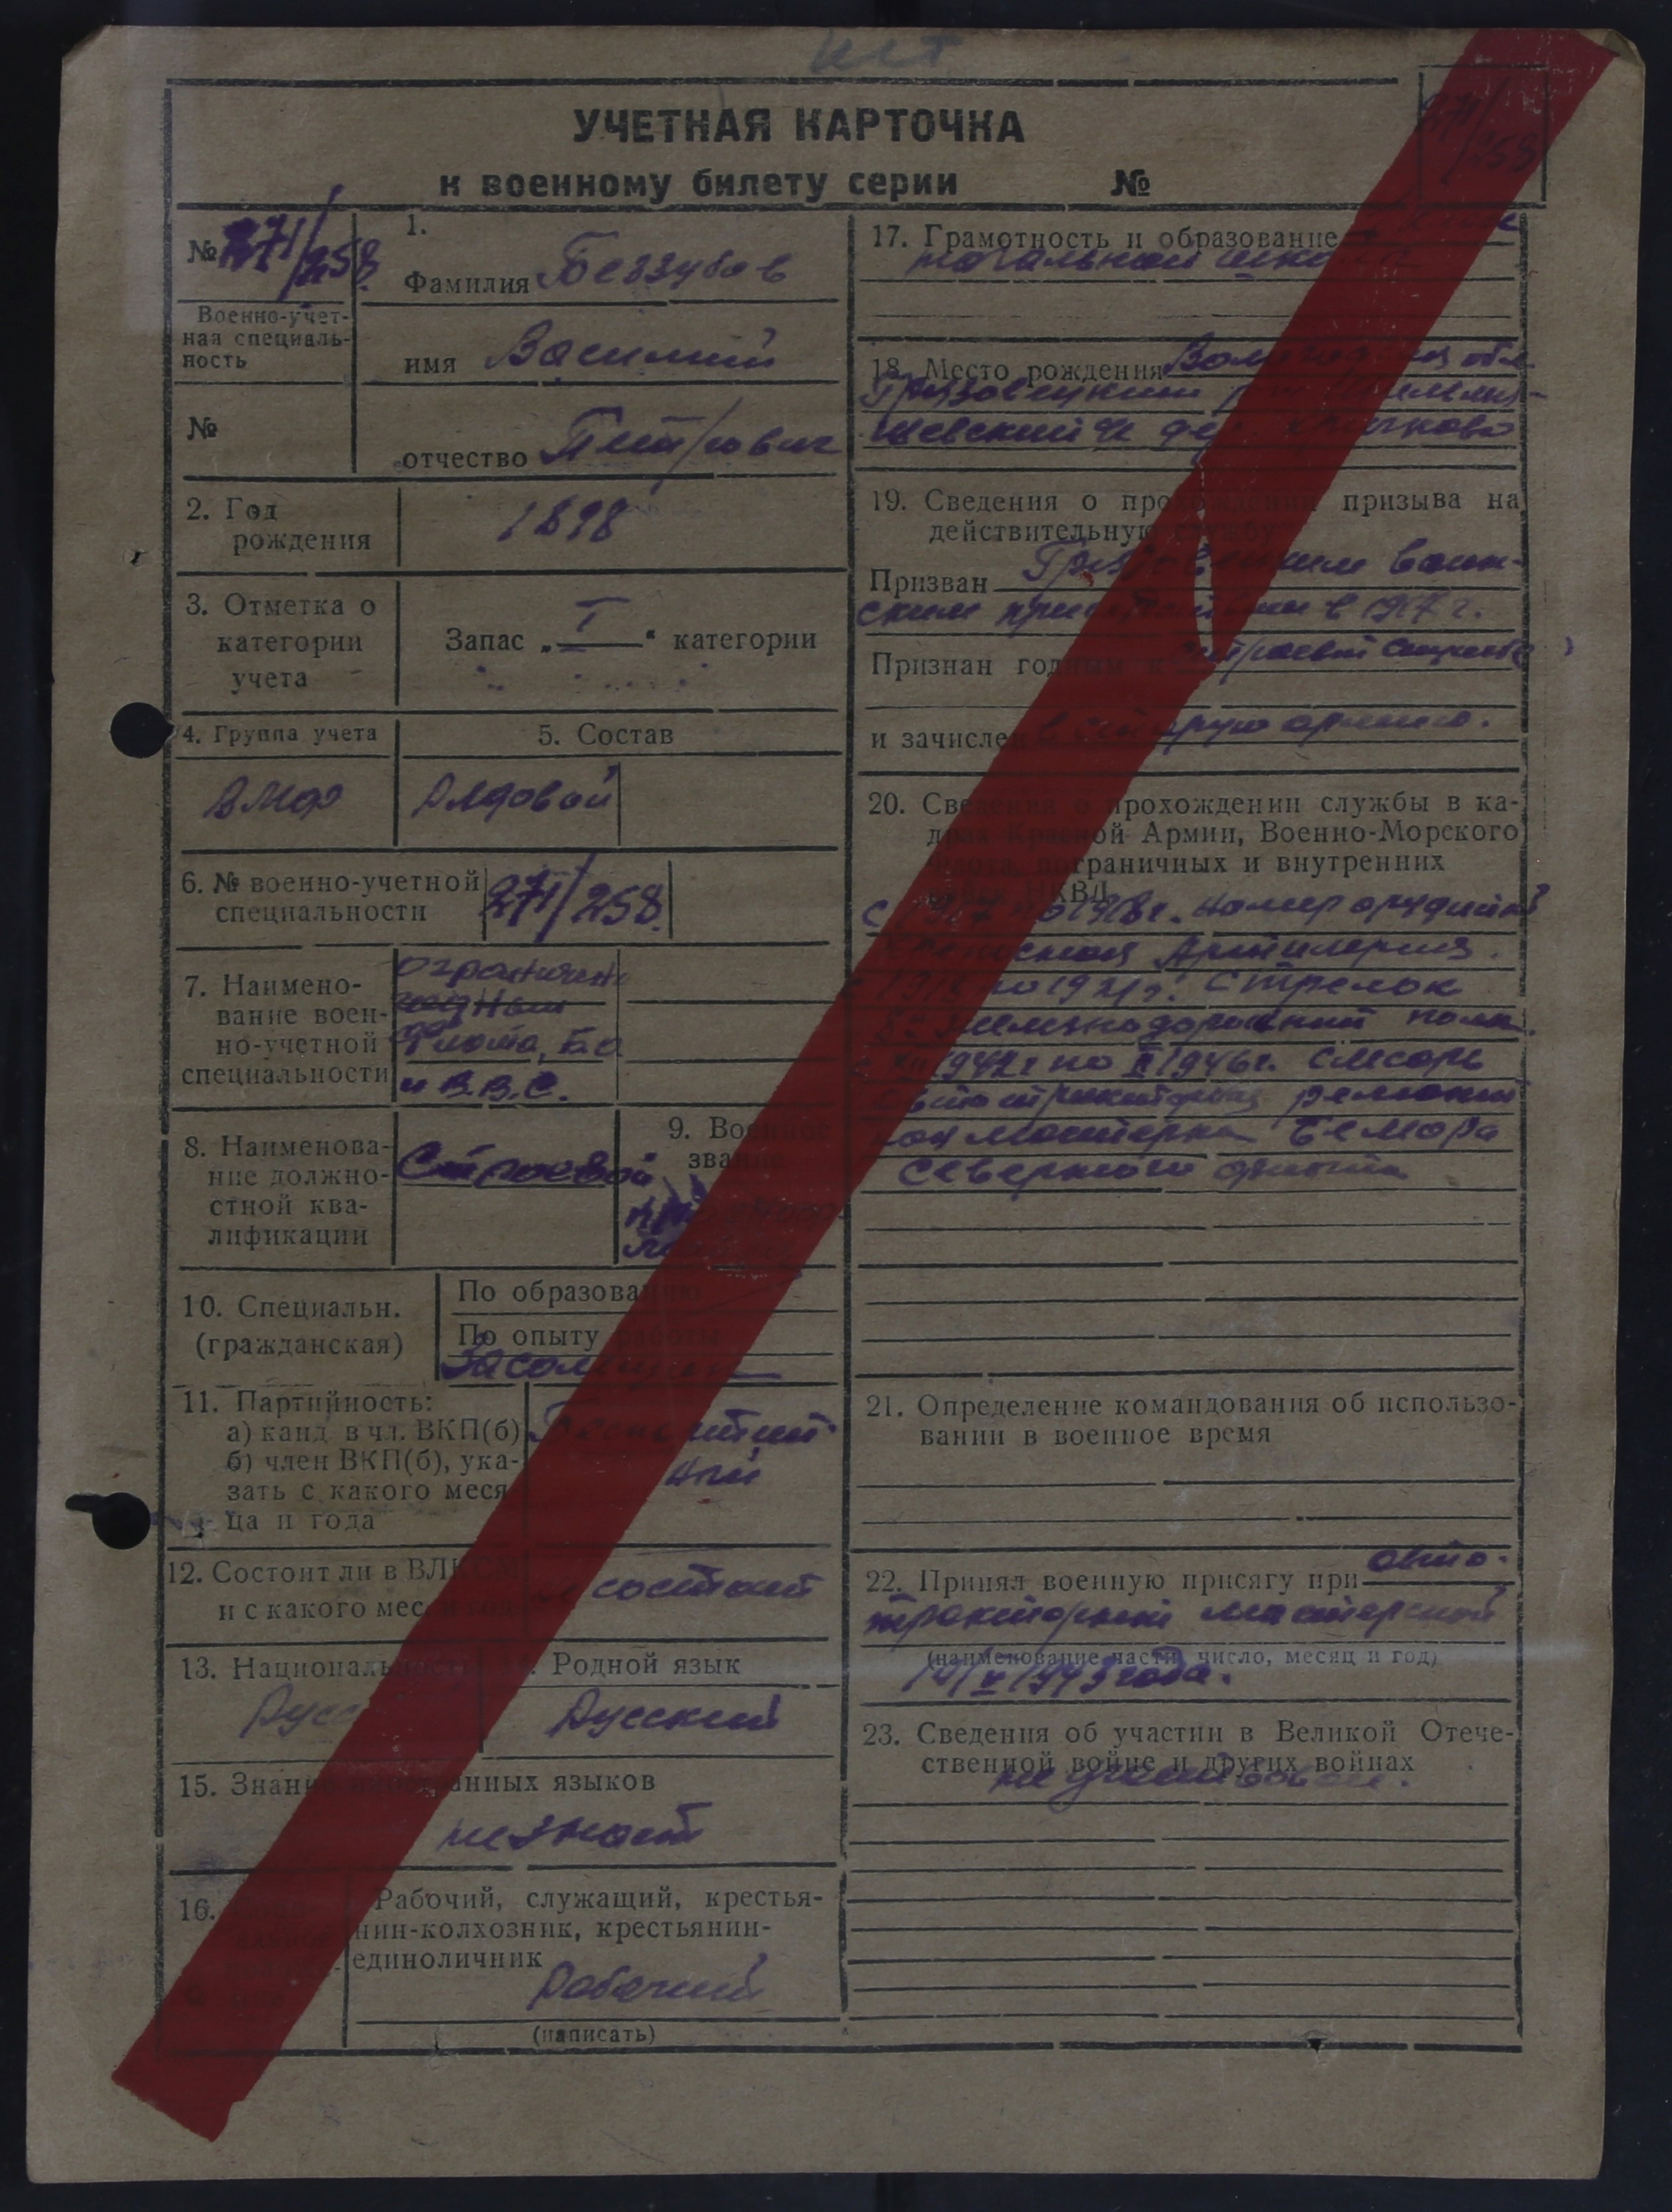 УЧЕТНАЯ КАРТОЧКА
к военному билету серии №
№ 271/258.
271/258
Военно-учет-
ная специаль-
ность
№
1.
Фамилия Беззубов
имя Василий
отчество Петрович
2. Год
рождения
1898
3. Отметка о
категории
учета
Запас „I“ категории
4. Группа учета
5. Состав
ВМФ
Рядовой
6. № военно-учетной
специальности
271/258.
7. Наимено-
вание воен-
но-учетной
специальности
годный
флота, Б.О
и В.В.С.
8. Наименова-
ние должно-
стной ква-
лификации
Строевой
9. Военное
звание
10. Специальн.
(гражданская)
По образованию
По опыту работы
11. Партийность:
а) канд в чл. ВКП(б)
б) член ВКП(б), ука-
зать с какого меся
ца и года
Беспартий-
ный
12. Состоит ли в ВЛКСМ
и с какого мес. и года
не состоит
13. Национальность
14. Родной язык
Русский
Русский
15. Знание иностранных языков
не знает
16.
Рабочий, служащий, крестья-
нин-колхозник, крестьянин-
единоличник
Рабочий
(написать)
17. Грамотность и образование
начальной школы
18. Место рождения Вологодская обл
Грязовецкий
дер.
19. Сведения о прохождении призыва на
действительную службу
Призван Грязовецким воин-
ским в 1917 г.
Признан годным к строевой службе
и зачислен в старую армию.
20. Сведения о прохождении службы в ка-
драх Красной Армии, Военно-Морского
Флота, пограничных и внутренних
войск НКВД
с 1917 по 1918 г. номер орудийный
Артиллерия.
с 1918 по 1921 г. Стрелок
железнодорожный полк.
1942 г по X 1946 г. слесарь
автотракторная ремонт
ная мастерская Беломора
Северного флота
21. Определение командования об использо-
вании в военное время
22. Принял военную присягу при авто-
тракторной мастерской
(наименование части, число, месяц и год)
V 1943 года.
23. Сведения об участии в Великой Отече-
ственной войне и других войнах
не участвовал.